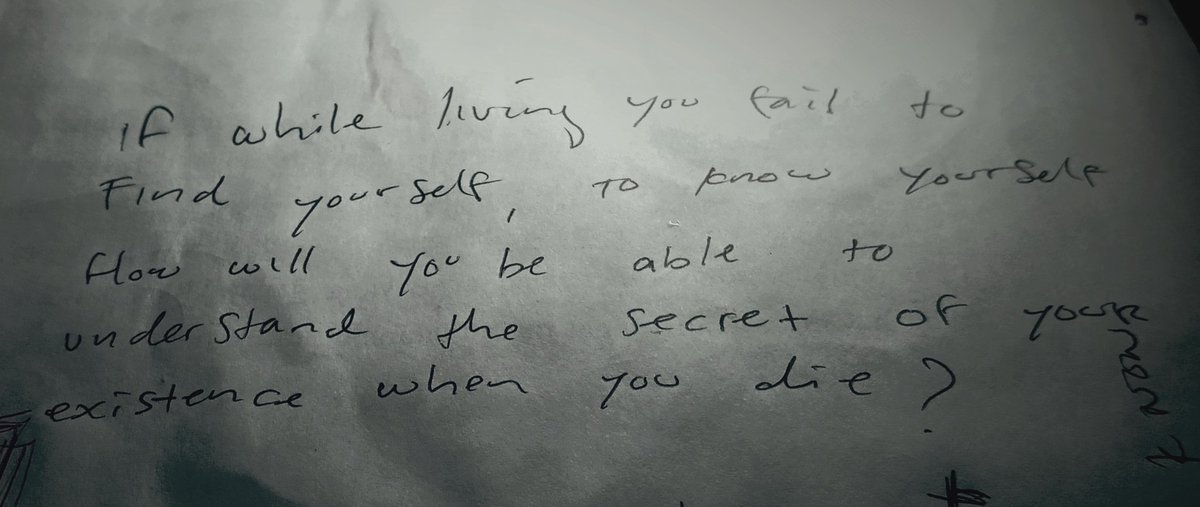 If while living you fail to
Find yourself, To know yourself
How will you be able to
understand the secret of your
existence when you die?